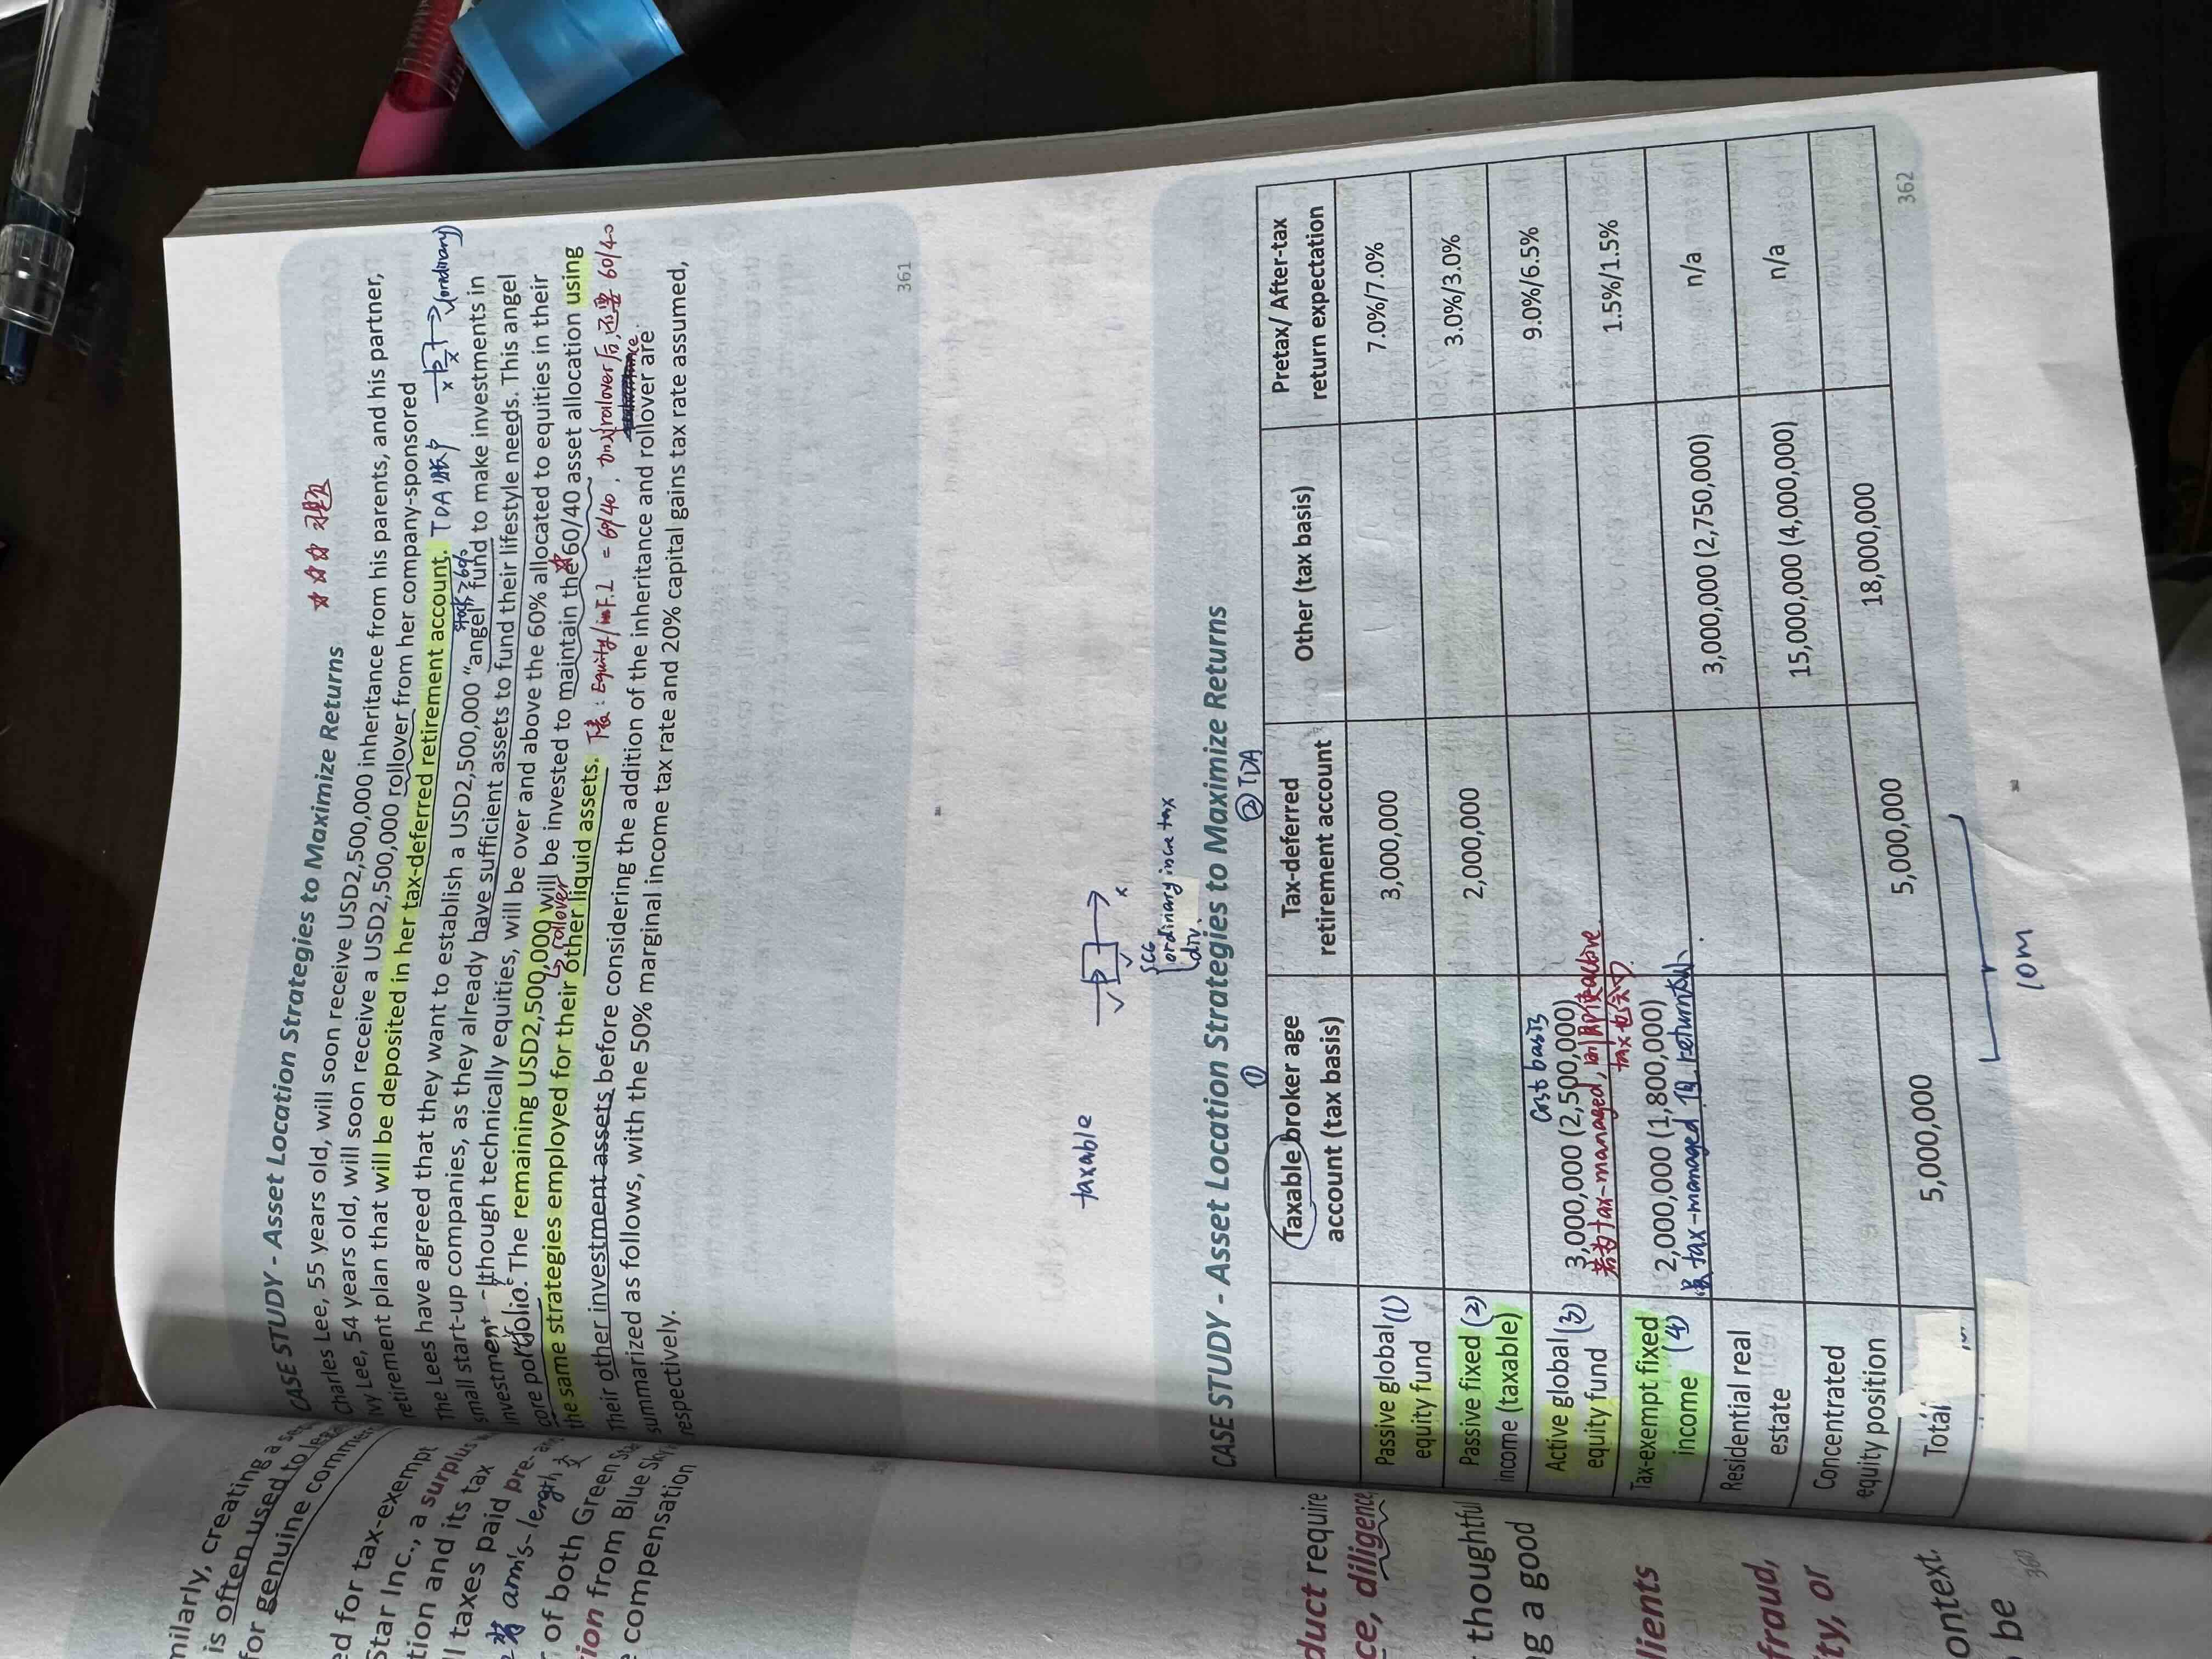 CASE STUDY - Asset Location Strategies to Maximize Returns ☆☆☆ 习题
Charles Lee, 55 years old, will soon receive USD2,500,000 inheritance from his parents, and his partner,
Ivy Lee, 54 years old, will soon receive a USD2,500,000 rollover from her company-sponsored
retirement plan that will be deposited in her tax-deferred retirement account. TDA账户
(ordinary)
The Lees have agreed that they want to establish a USD2,500,000 "angel" fund to make investments in
small start-up companies, as they already have sufficient assets to fund their lifestyle needs. This angel
investment, though technically equities, will be over and above the 60% allocated to equities in their
core portfolio. The remaining USD2,500,000 will be invested to maintain the 60/40 asset allocation using
rollover
the same strategies employed for their other liquid assets. 下表: Equity/ = 60/40, 加入rollover后,还要 60/40
Their other investment assets before considering the addition of the inheritance and rollover are
summarized as follows, with the 50% marginal income tax rate and 20% capital gains tax rate assumed,
respectively.
361
taxable
CG
ordinary tax
div.
CASE STUDY - Asset Location Strategies to Maximize Returns
① ② TDA
Taxable broker age account (tax basis)
Tax-deferred retirement account
Other (tax basis)
Pretax/ After-tax return expectation
Passive global equity fund (1) 3,000,000 7.0%/7.0%
Passive fixed income (taxable) (2) 2,000,000 3.0%/3.0%
cost basis
Active global equity fund (3) 3,000,000 (2,500,000) 9.0%/6.5%
若为tax-managed, 则即使active
tax也会
Tax-exempt fixed income (4) 2,000,000 (1,800,000) 1.5%/1.5%
tax-managed 的 return
Residential real estate 3,000,000 (2,750,000) n/a
Concentrated equity position 15,000,000 (4,000,000) n/a
Total 5,000,000 5,000,000 18,000,000
10m
362
milarly, creating a
is often used to
for genuine
ed for tax-exempt
Star Inc., a surplus
tion and its tax
ll taxes paid pre-
arm's-length
of both Green
tion from Blue Sky
compensation
duct require
ce, diligence,
thoughtful
ng a good
lients
fraud,
ty, or
ontext.
be
360